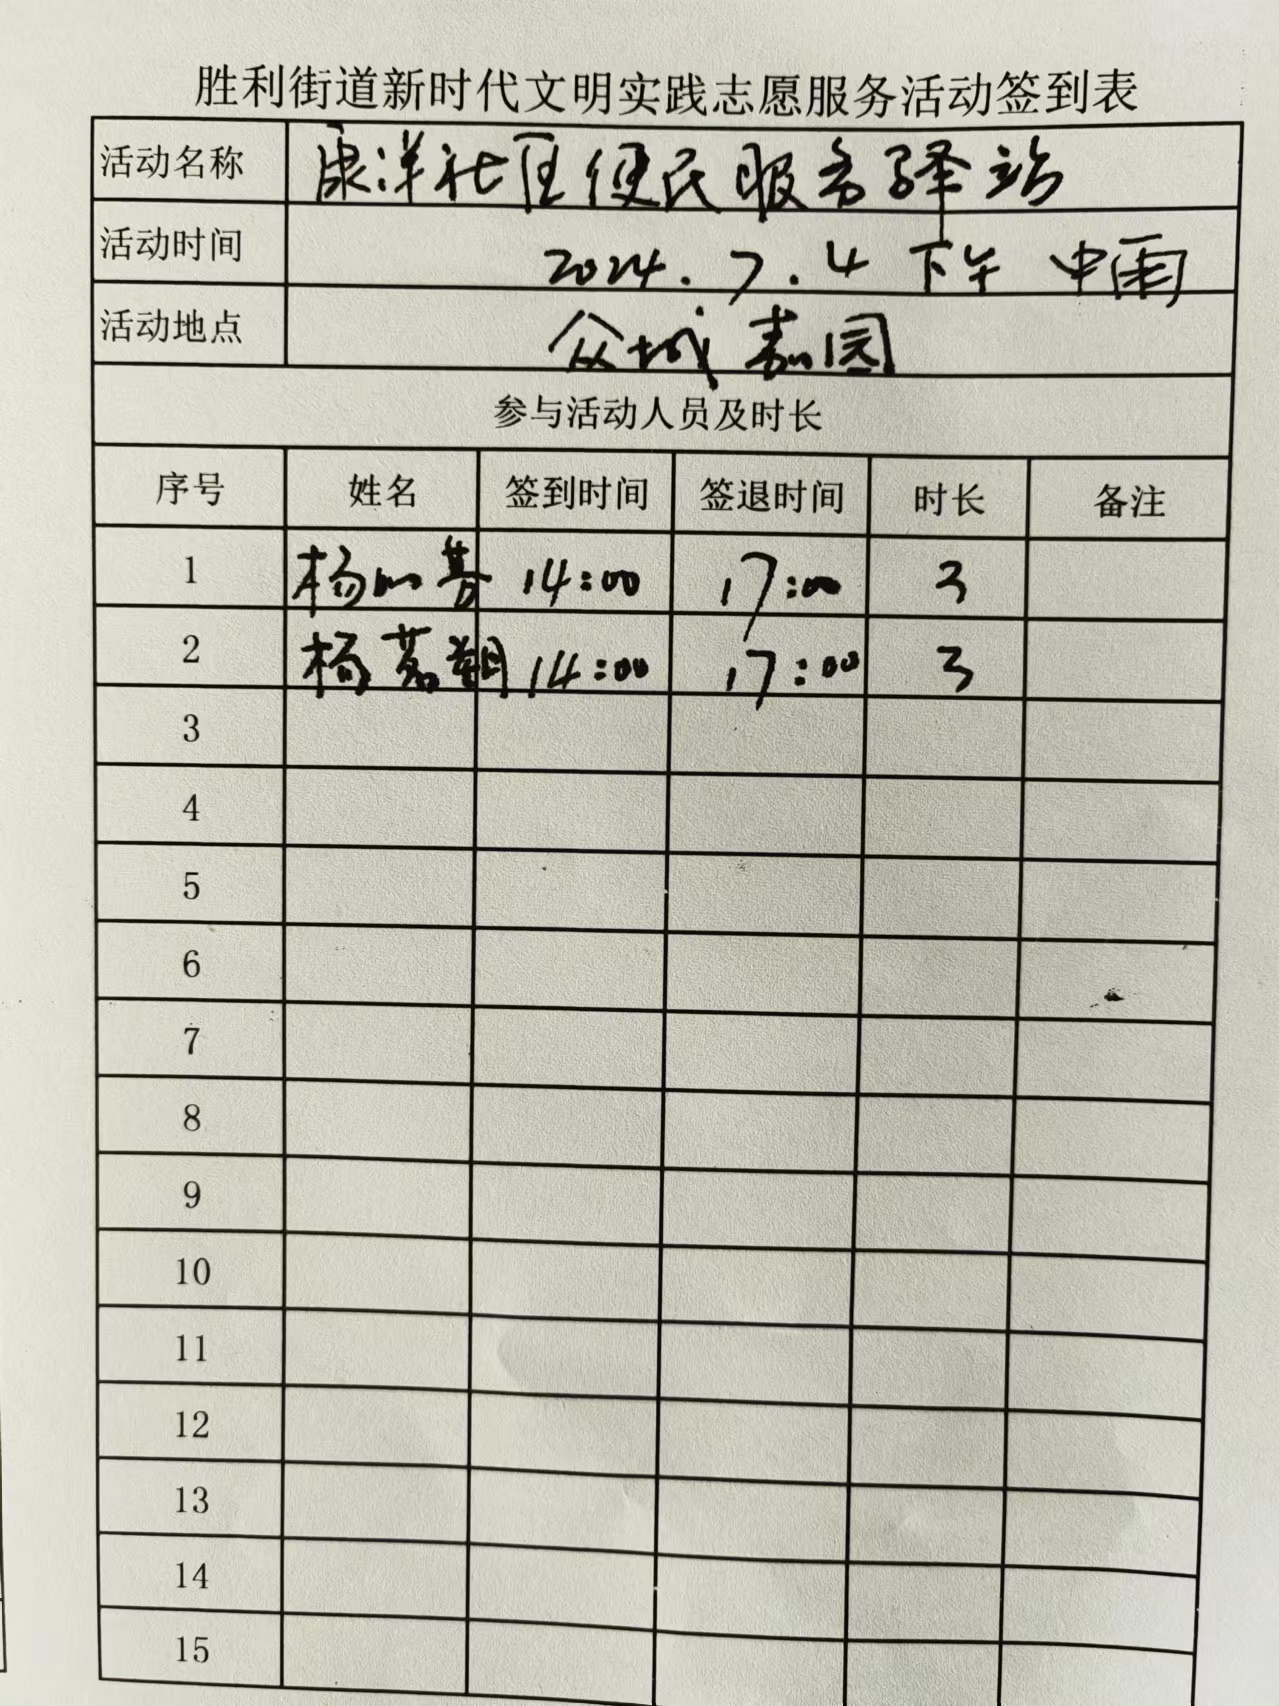 胜利街道新时代文明实践志愿服务活动签到表
活动名称 康洋社区便民服务驿站
活动时间 2024.7.4 下午 中雨
活动地点 众城嘉园
参与活动人员及时长
序号 姓名 签到时间 签退时间 时长 备注
1 杨 14:00 17:00 3
2 杨荔 14:00 17:00 3
3
4
5
6
7
8
9
10
11
12
13
14
15